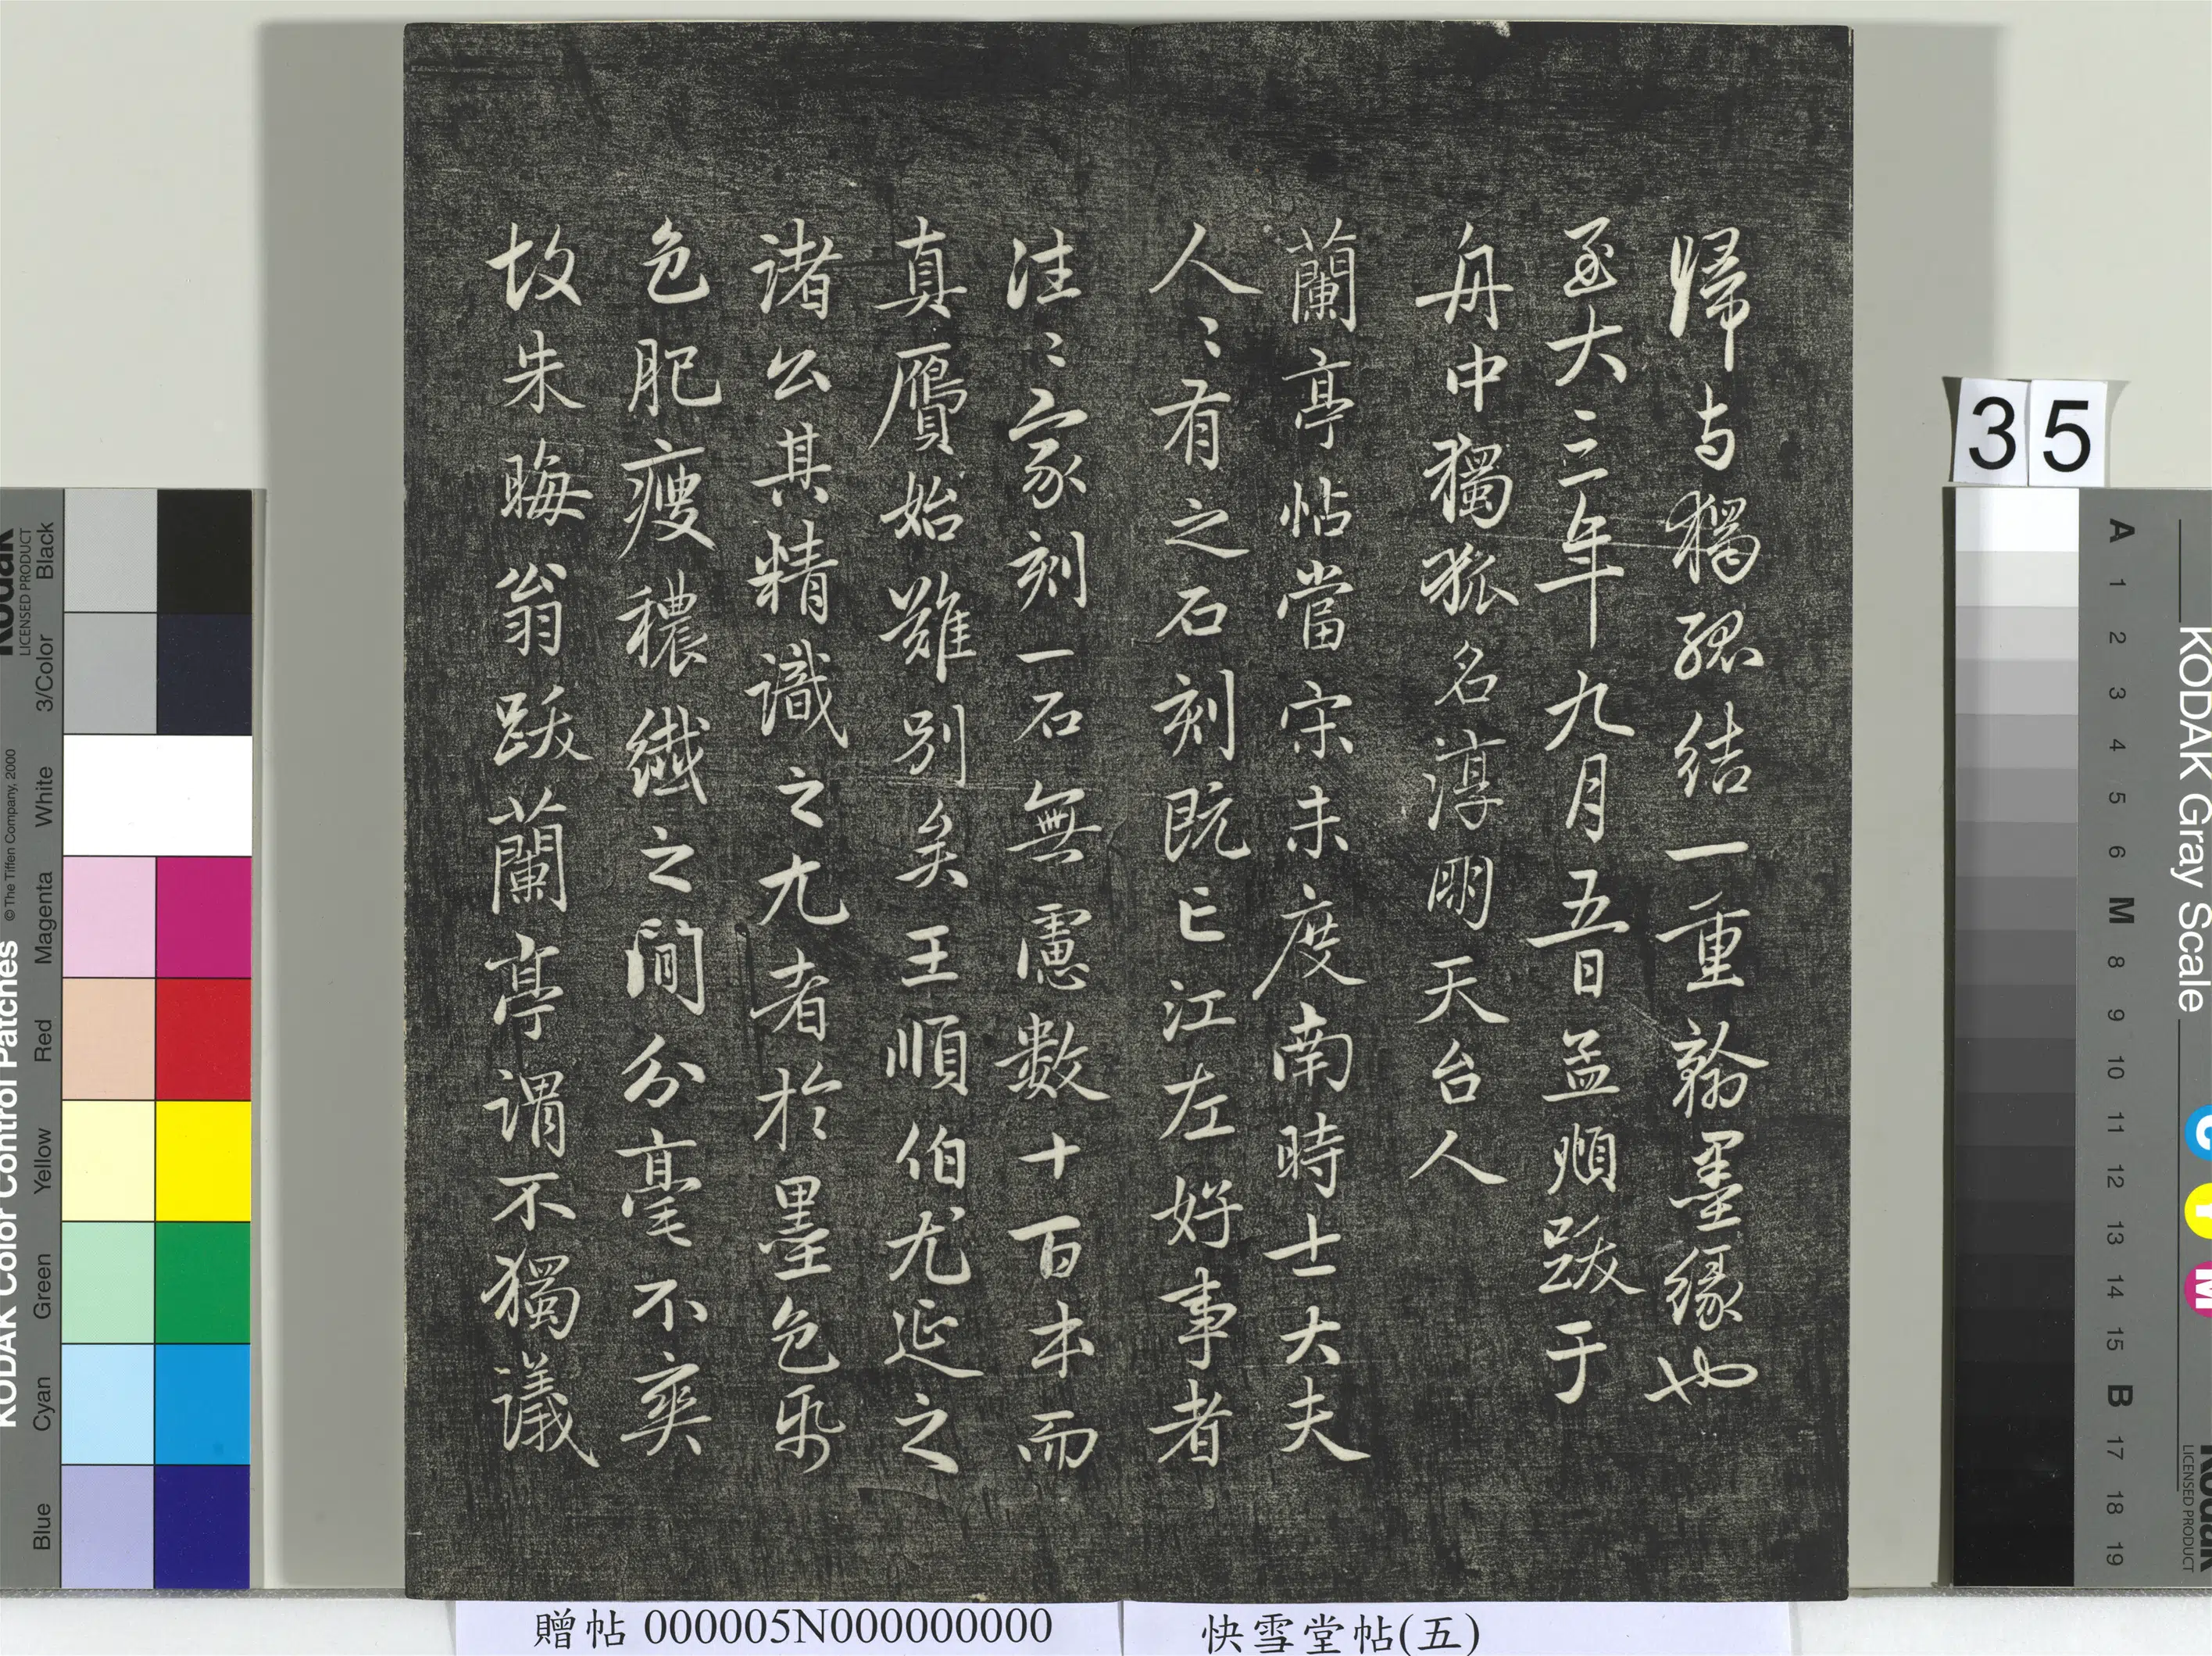 歸与獨孤結一重翰墨緣也
至大三年九月五日孟頫跋于
舟中獨孤名淳朋天台人
蘭亭帖當宋未度南時士大夫
人〻有之石刻既亡江左好事者
往〻家刻一石無慮數十百本而
真贗始難別矣王順伯尤延之
諸公其精識之尤者於墨色紙
色肥瘦穠纖之間分毫不爽
故朱晦翁跋蘭亭謂不獨議
35
KODAK Color Control Patches
© The Tiffen Company, 2000
Kodak
LICENSED PRODUCT
Blue
Cyan
Green
Yellow
Red
Magenta
White
3/Color
Black
KODAK Gray Scale
C
Y
M
Kodak
LICENSED PRODUCT
A
1
2
3
4
5
6
M
8
9
10
11
12
13
14
15
B
17
18
19
贈帖 000005N000000000
快雪堂帖(五)